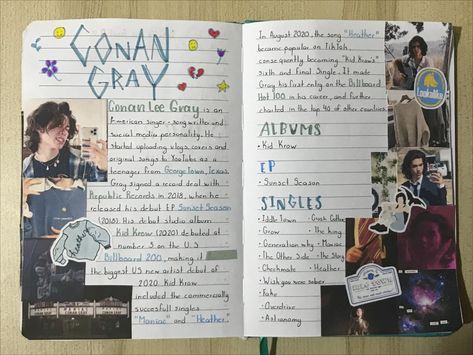 CONAN
GRAY
Conan Lee Gray is an
American singer, songwriter and
social media personality. He
started uploading vlogs, covers and
original songs to YouTube as a
teenager from Georgetown, Texas.
Gray signed a record deal with
Republic Records in 2018, when he
released his debut EP Sunset Season
(2018). His debut studio album
Kid Krow (2020) debuted at
number 5 on the U.S
Billboard 200, making it
the biggest US new artist debut of
2020. Kid Krow
included the commercially
succesfull singles
"Maniac" and "Heather".
Heather
In August 2020, the song "Heather"
became popular on TikTok
consequently becoming "Kid Krow's"
sixth and final single. It made
Gray his first entry on the Billboard
Hot 100 in his career, and further
charted in the top 40 of other countries.
Lookalike
ALBUMS
• Kid Krow
EP
• Sunset Season
SINGLES
• Idle Town • Crush Culture
• Grow • The king
• Generation why • Maniac
• The Other Side • The Story
• Checkmate • Heather
• Wish you were sober
• Fake
• Overdrive
• Astronomy